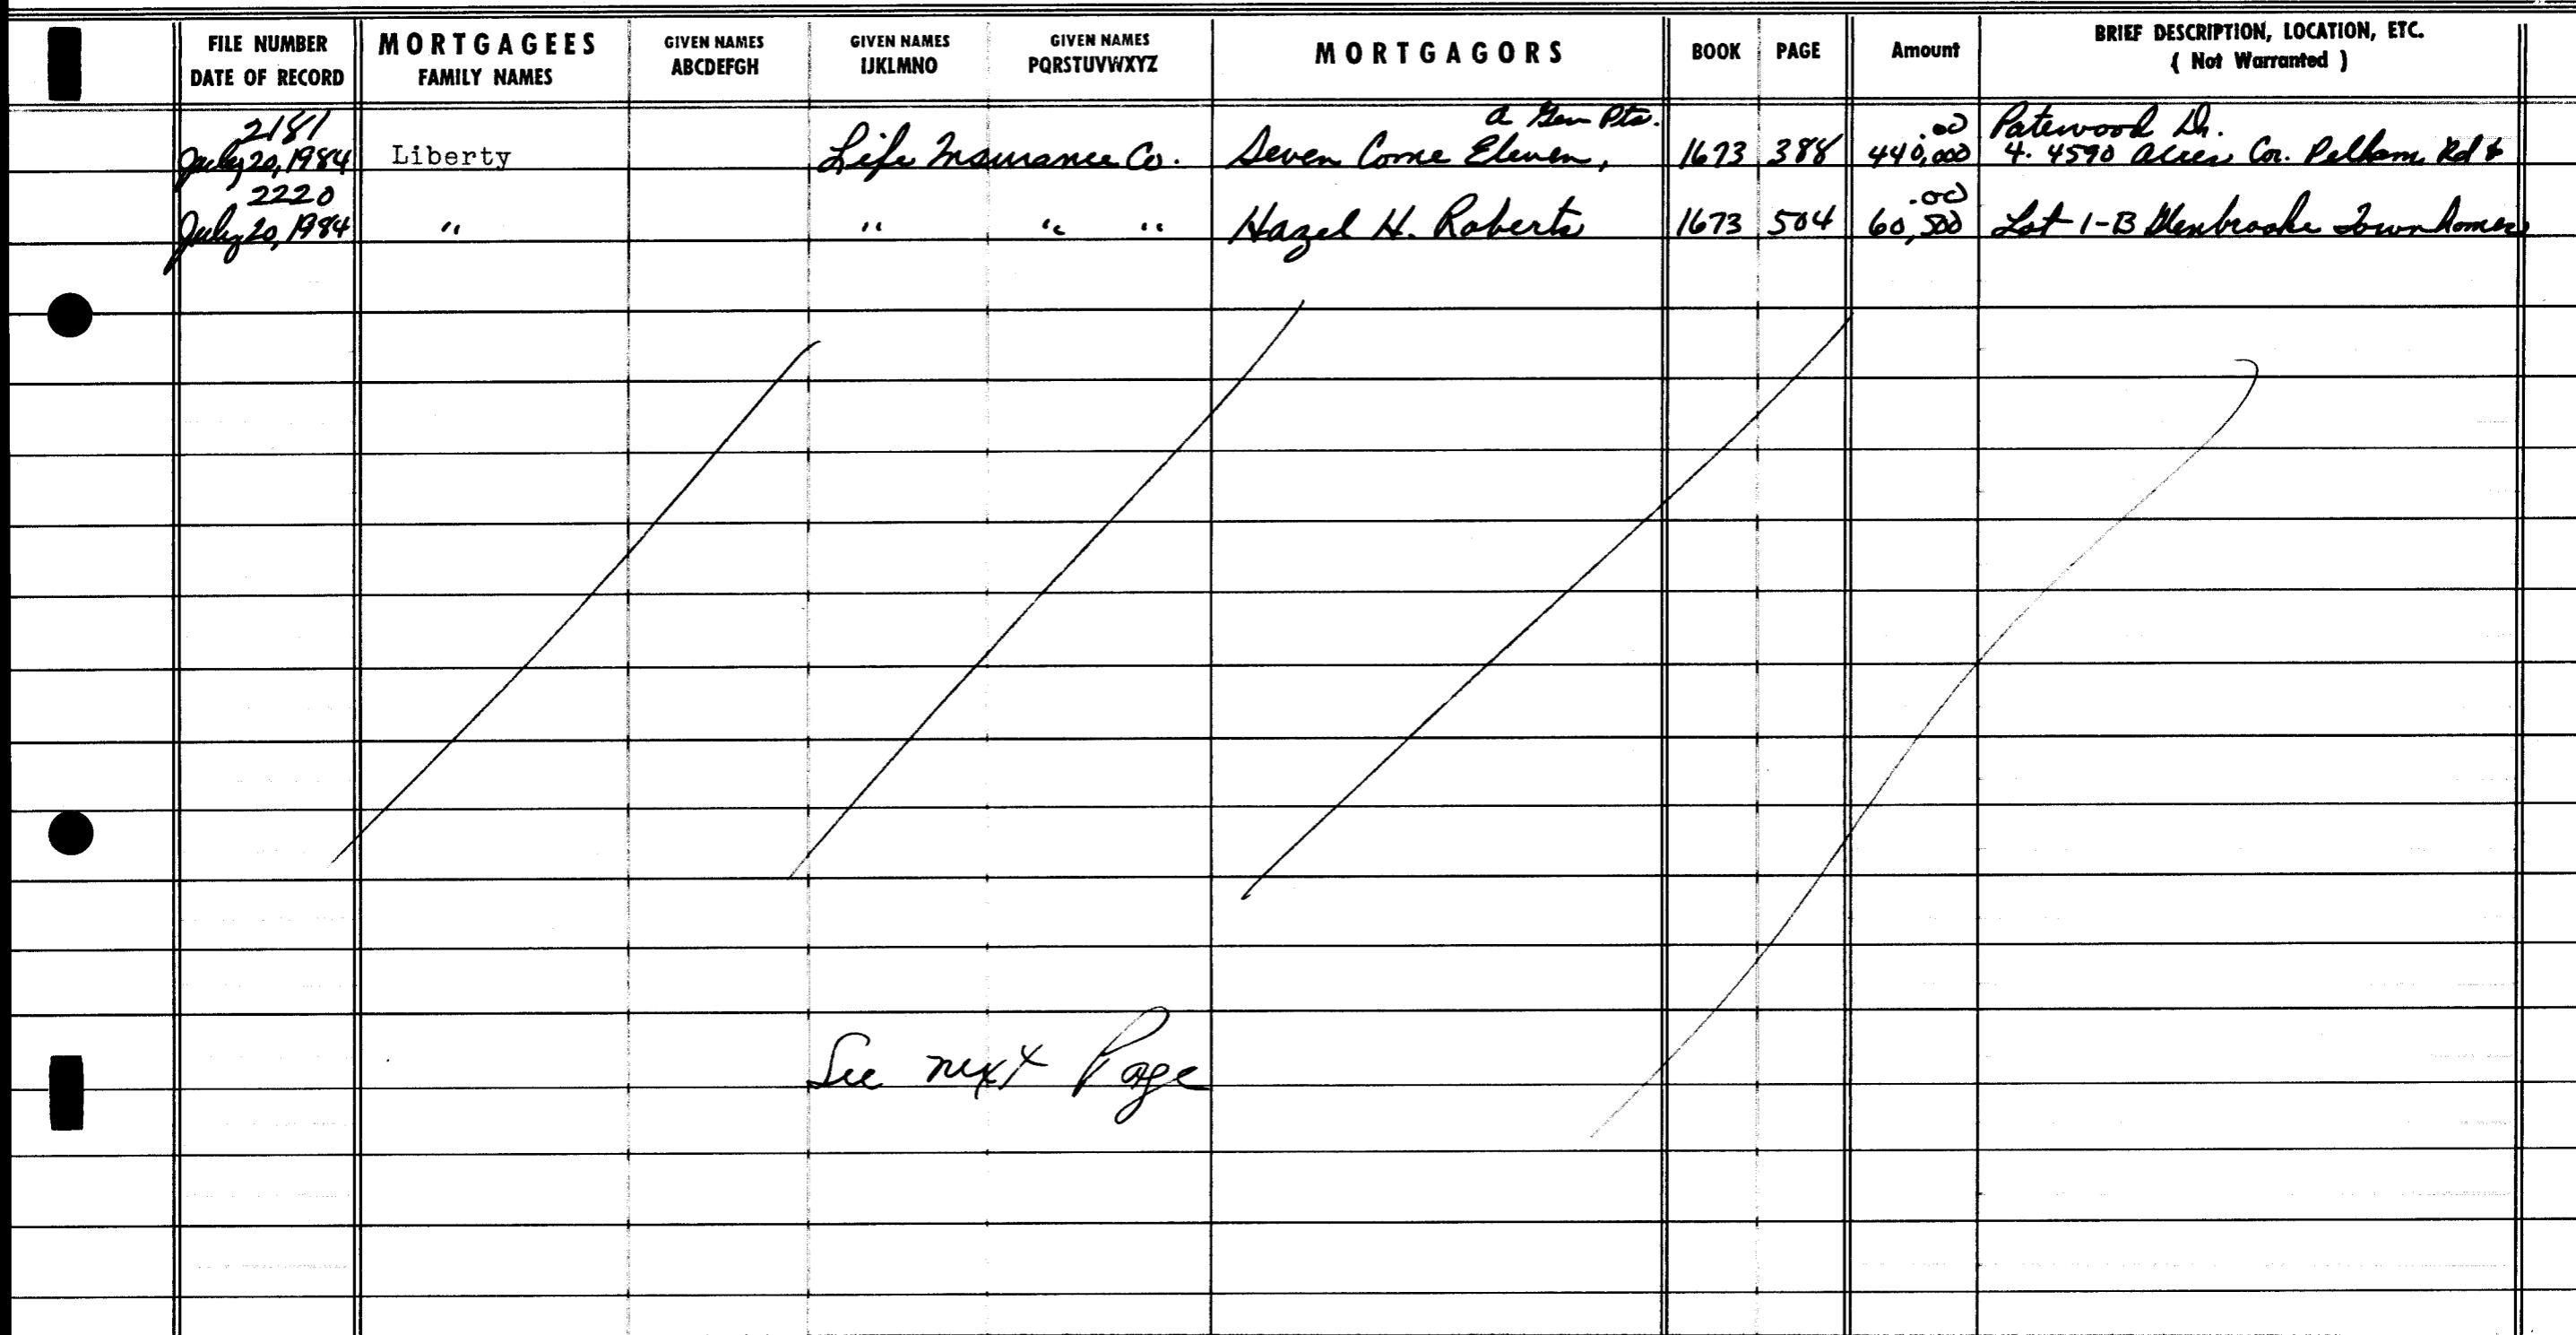 FILE NUMBER
DATE OF RECORD
MORTGAGEES
FAMILY NAMES
GIVEN NAMES
ABCDEFGH
GIVEN NAMES
IJKLMNO
GIVEN NAMES
PQRSTUVWXYZ
MORTGAGORS
BOOK
PAGE
Amount
BRIEF DESCRIPTION, LOCATION, ETC.
( Not Warranted )
2181 a Gen Ptr. .00 Patewood Dr.
July 20, 1984 Liberty Life Insurance Co. Seven Come Eleven, 1673 388 440,000 4.4590 Acres Cor. Pelham Rd &
2220 .00
July 20, 1984 " " " " Hazel H. Roberts 1673 504 60,500 Lot 1-B Glenbrooke Townhomes
See next Page